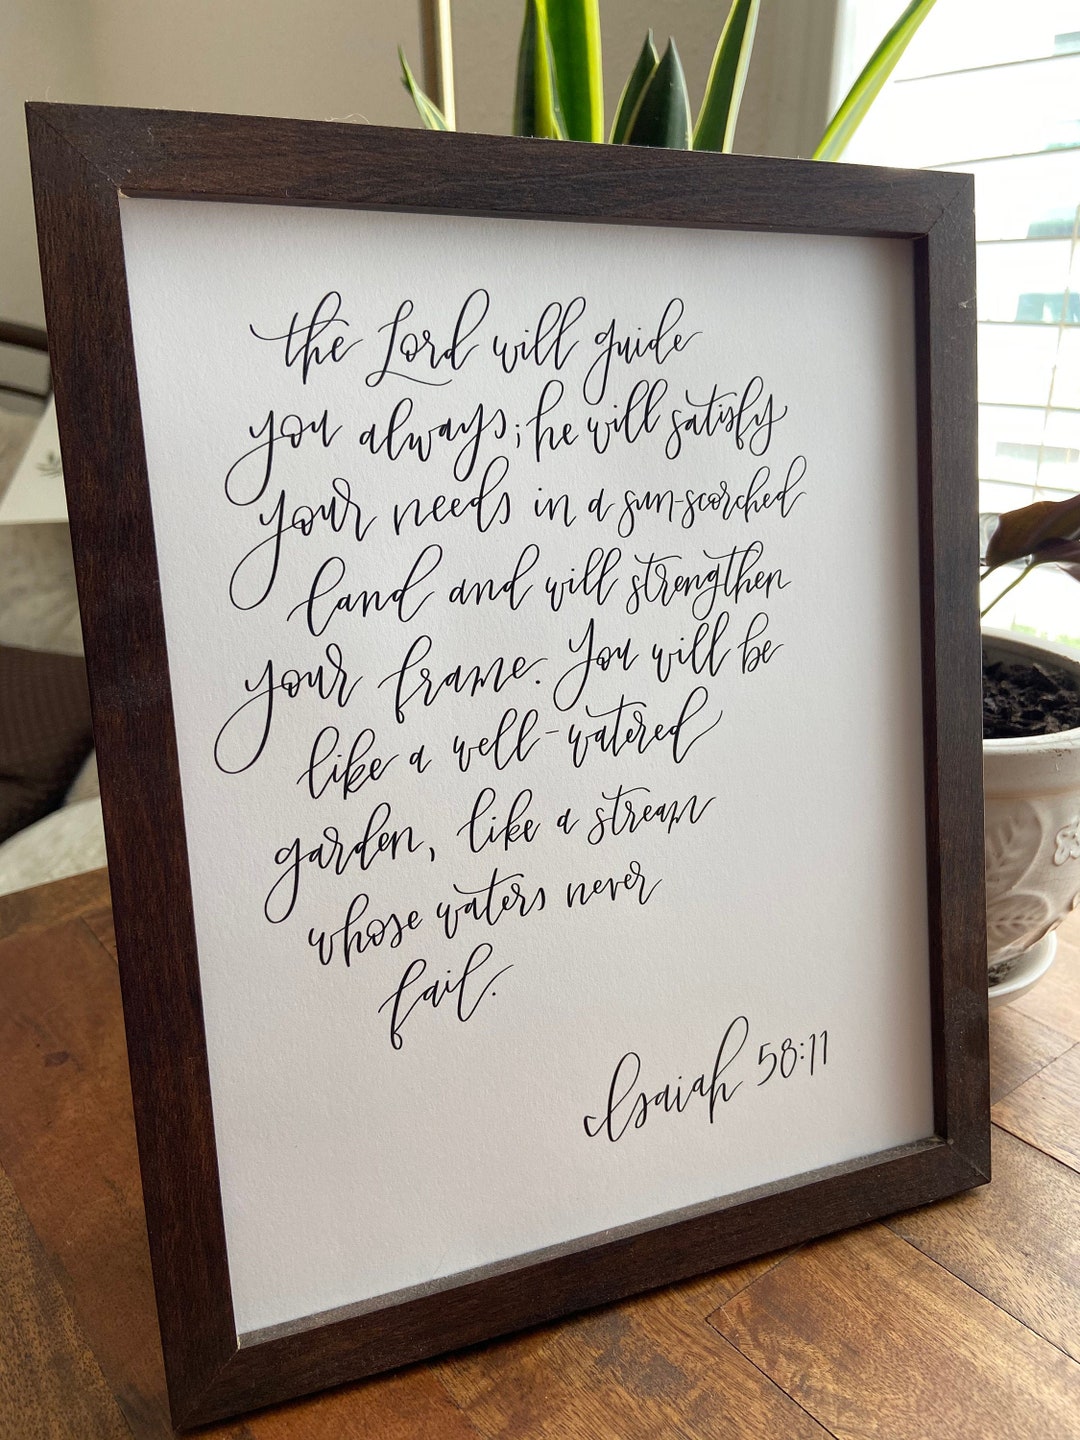 the Lord will guide
you always; he will satisfy
your needs in a sun-scorched
land and will strengthen
your frame. You will be
like a well-watered
garden, like a stream
whose waters never
fail.
Isaiah 58:11